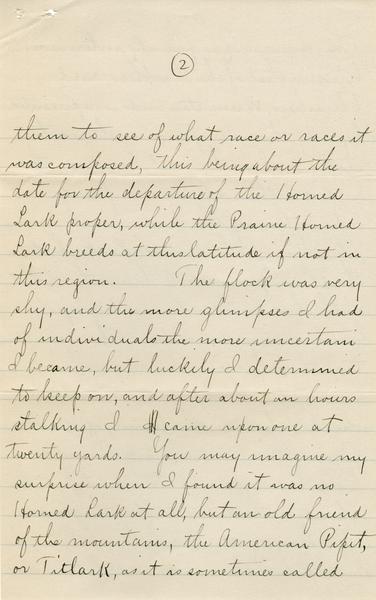 2
them to see of what race or races it
was composed, this being about the
date for the departure of the Horned
Lark proper, while the Prairie Horned
Lark breeds at this latitude if not in
this region. The flock was very
shy, and the more glimpses I had
of individuals the more uncertain
I became, but luckily I determined
to keep on, and after about an hours
stalking I came upon one at
twenty yards. You may imagine my
surprise when I found it was no
Horned Lark at all, but an old friend
of the mountains, the American Pipit,
or Titlark, as it is sometimes called